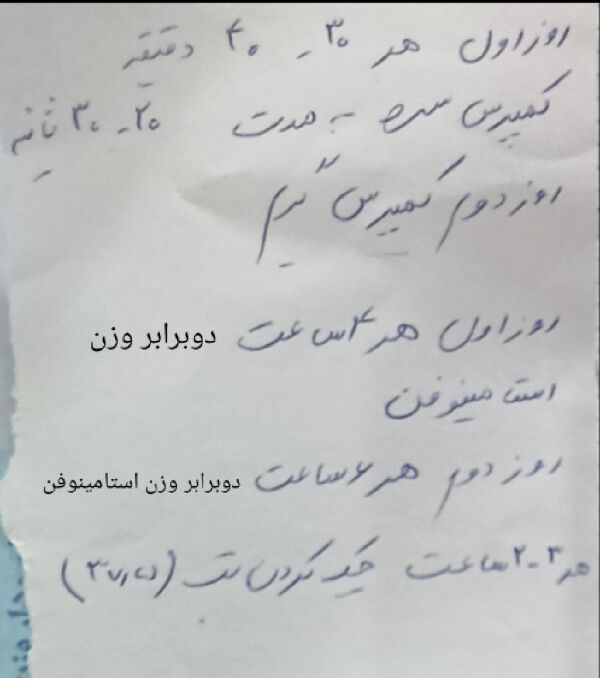 روز اول هر ۳۰ - ۴۰ دقیقه
کمپرس سرد به مدت ۲۰-۳۰ ثانیه
روز دوم کمپرس گرم
روز اول هر ۴ ساعت دوبرابر وزن
استامینوفن
روز دوم هر ۶ ساعت دوبرابر وزن استامینوفن
هر ۳-۲ ساعت چک کردن تب (۳۷/۵)